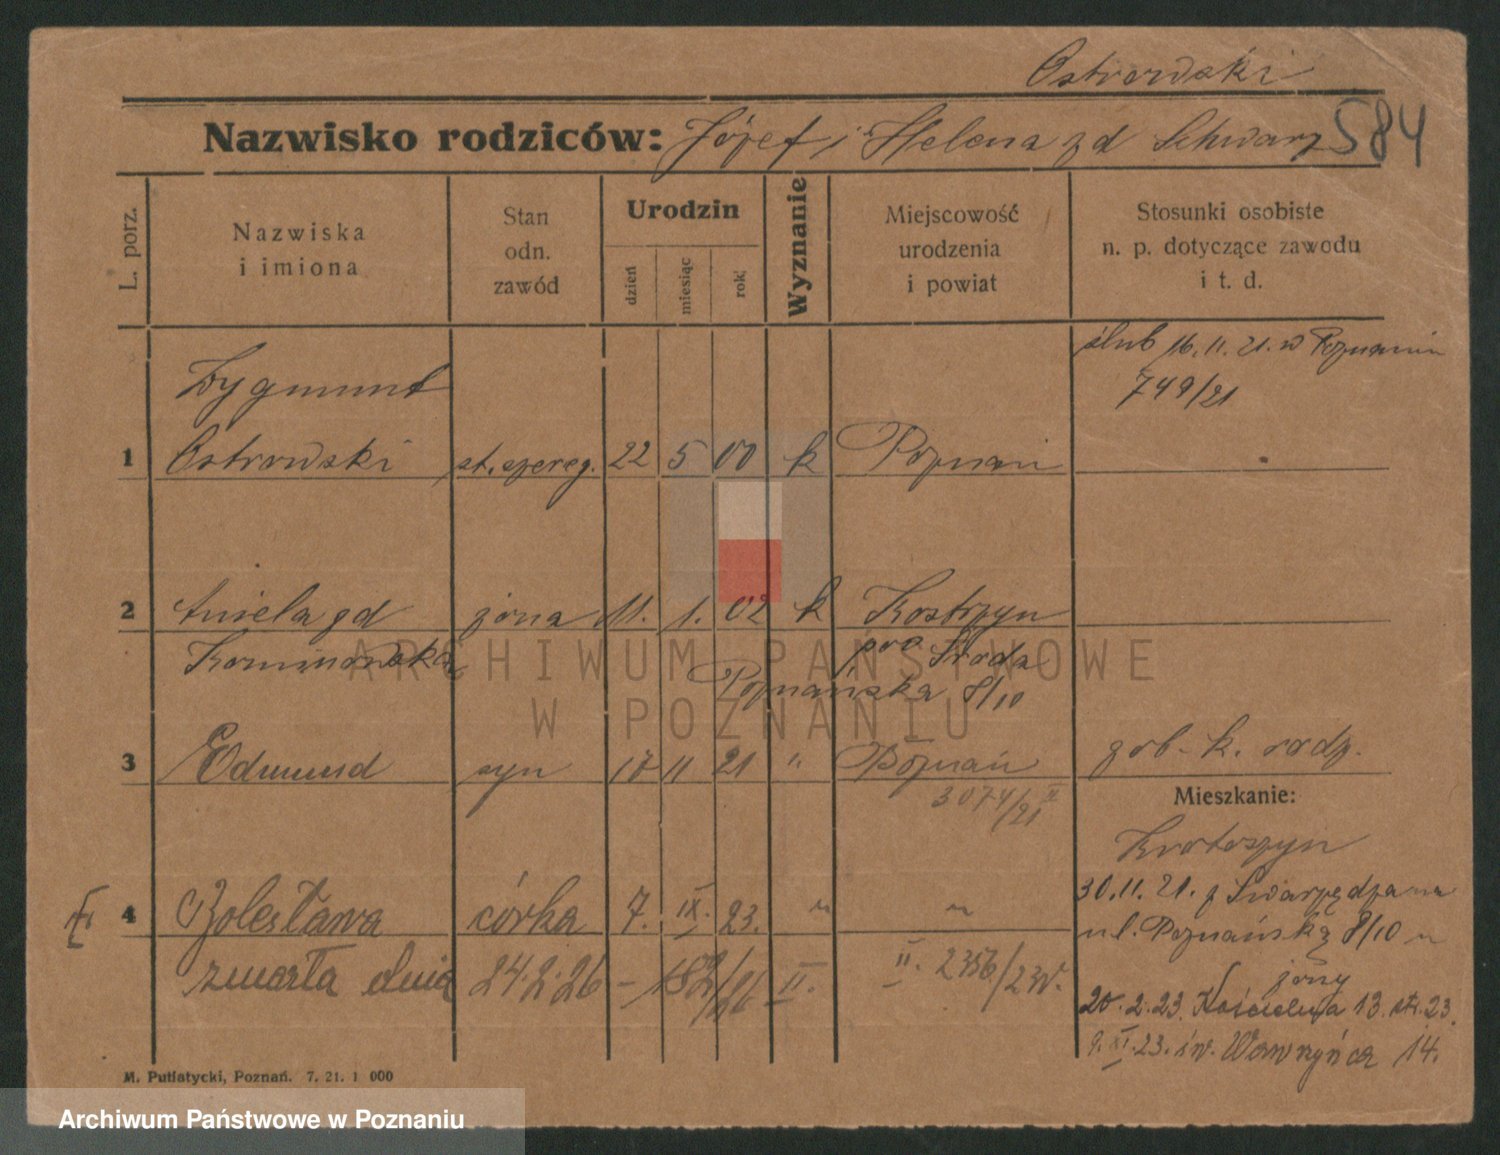 Ostrowski
Nazwisko rodziców: Józef i Helena z d Schwarz 584
L. porz.
Nazwiska
i imiona
Stan
odn.
zawód
Urodzin
dzień
miesiąc
rok
Wyznanie
Miejscowość
urodzenia
i powiat
Stosunki osobiste
n. p. dotyczące zawodu
i t. d.
ślub 16.11.21. w Poznaniu
749/21
Zygmunt
1 Ostrowski st. szereg. 22 5 00 k Poznań
2 Aniela zd żona 11. 1. 02 k Kostrzyn
pow. Środa
Poznańska 8/10
3 Edmund syn 17 11 21 " Poznań zob. k. rodz.
3074/21 II
Mieszkanie:
Krotoszyn
30.11.21. z Swarzędza na
ul. Poznańską 8/10 u
żony
20.2.23. Kościelna 13. 23.
9.XI.23. św. Wawrzyńca 14.
4 Bolesława córka 7. IX. 23. " "
zmarła dnia 24.2.26 - 182/26 II.
II. 2356/23
M. Putiatycki, Poznań. 7. 21. 1 000
ARCHIWUM PAŃSTWOWE
W POZNANIU
Archiwum Państwowe w Poznaniu